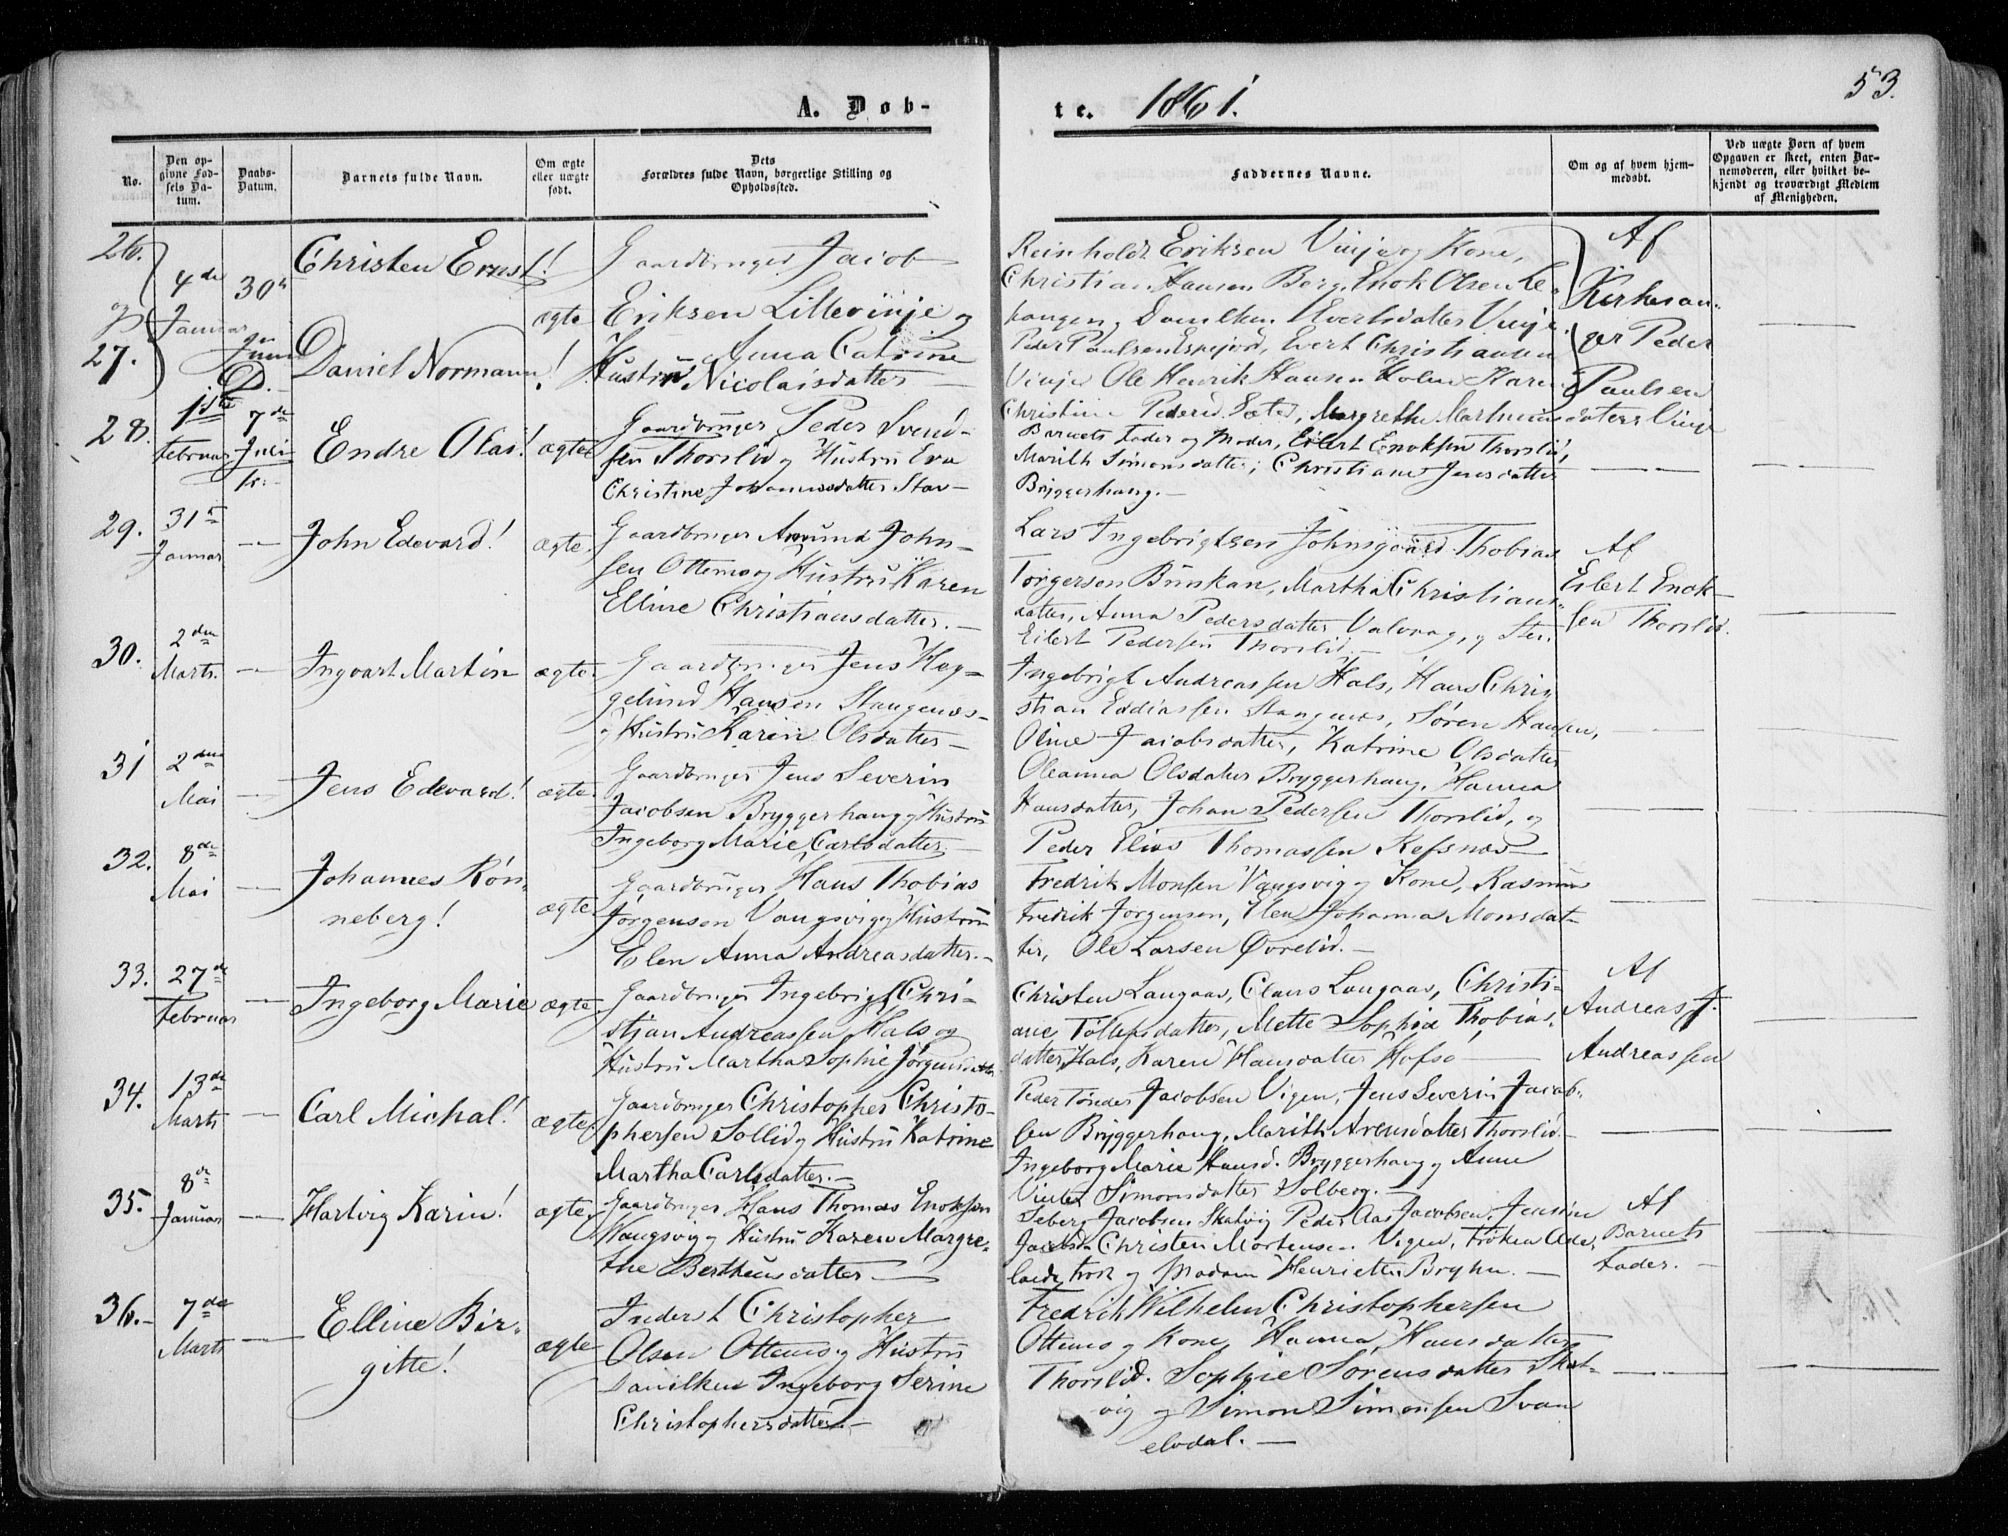 53.
A. Døb-
te. 1861.
No.
Den op-
givne Fød-
sels Da-
tum.
Daabs-
Datum.
Barnets fulde Navn.
Om ægte
eller uægte
født.
Dets
Forældres fulde Navn, borgerlige Stilling og
Opholdssted.
Faddernes Navne.
Om og af hvem hjem-
medøbt.
Ved uægte Børn af hvem
Opgaven er skeet, enten Bar-
nemoderen, eller hvilket be-
kjendt og troværdigt Medlem
af Menigheden.
26.
og
27.
4de
Januar
30te
Juni
Christen Ernst!
Daniel Normann!
ægte
Gaardbruger Jacob
Eriksen Lillevinje og
Hustru Anna Catrine
Nicolaisdatter
Reinholdt Eriksen Vinje og Kone,
Christian Hansen Berg, Enok Olsen Le-
hangen, Danilken Evertsdatter Vinje
Peder Paulsen Espejord, Evert Christiansen
Vinje Ole Henrik Hansen Holm Karen
Christine Pedersd. Sæter, Margrethe Martinusdatter Vinje
Af
Kirkesan-
ger Peder
Paulsen
28.
1ste
Februar
7de
Juli
Endre Olai!
ægte
Gaardbruger Peder Svend-
sen Thorslid og Hustru Eva
Christine Johannesdatter
Barnets Fader og Moder, Eilert Enoksen Thorslid,
Marith Simonsdatter; Christiane Jensdatter
Bryggerhaug.
29.
31te
Januar
John Edevard!
ægte
Gaardbruger Amund John-
sen Ottemo og Hustru Karen
Elline Christiansdatter.
Lars Ingebrigtsen Johnsgaard Thobias
Torgersen Bunkan, Martha Christians-
datter, Anna Pedersdatter Valvaag, og
Eilert Pedersen Thorslid.
Af
Eilert Enok-
sen Thorslid.
30.
2den
Marts.
Ingvart Martin
ægte.
Gaardbruger Jens Hag-
gelund Hansen Stangenæs
og Hustru Karin Olsdatter
Ingebrigt Andreassen Hals, Hans Chri-
stian Eddiassen Stangenæs, Søren Hansen,
Oline Jacobsdatter, Katrine Olsdatter
31
2den
Mai
Jens Edevard!
ægte
Gaardbruger Jens Severin
Jacobsen Bryggerhaug og Hustru
Ingeborg Marie Carlsdatter.
Oleanna Olsdatter Bryggerhaug, Hanna
Hansdatter, Johan Pedersen Thorslid, og
Peder Elias Thomassen Refsnæs
32.
8de
Mai
Johannes Røn-
neberg!
ægte
Gaardbruger Hans Thobias
Jørgensen Vangsvig og Hustru
Elen Anna Andreasdatter.
Fredrik Monsen Vangsvig og Kone, Rasmus
Fredrik Jorgensen, Elen Johanna Monsdat-
ter, Ole Larsen Øvrelid.
33.
27de
Februar
Ingeborg Marie
ægte.
Gaardbruger Ingebrigt Chri-
stjan Andreassen Hals og
Hustru Martha Sophie Jørgensdatter
Christen Langaas, Claus Langaas, Christi-
ane Tollefsdatter, Mette Sophia Thobias-
datter Hals, Karen Hansdatter Hofsø
Af
Andreas J.
Andreassen
34.
13de
Marts
Carl Michal!
ægte
Gaardbruger Christopher Christo-
phersen Sollid og Hustru Katrine
Martha Carlsdatter.
Peder Tønder Jacobsen Vigen, Jens Severin Jacob-
sen Bryggerhaug, Marith Arensdatter Thorslid
Ingeborg Marie Hansd. Bryggerhaug og Anne
Simonsdatter Solberg.
35.
8de
Januar
Hartvig Karin!
ægte
Gaardbruger Hans Thomas Enoksen
Vangsvig og Hustru Karen Margre-
the Bertheusdatter
Seberg Jacobsen Skatvig Peder Aas Jacobsen, Jensine
Jacobsd. Christen Mortensen Vigen, Frøken Ade-
laide og Madam Henriette Bryhn.
Af
Barnets
Fader.
36.
7de
Marts
Elline Bir-
gitte!
ægte
Inderst Christopher
Olsen Ottemo og Hustru
Danilken Ingeborg Serine
Christophersdatter.
Fredrik Wilhelm Christophersen
Ottemo og Kone, Hanna Hansdatter
Thorslid. Sophie Sørensdatter Skat-
vig og Simon Simonsen Svan
elvdal.